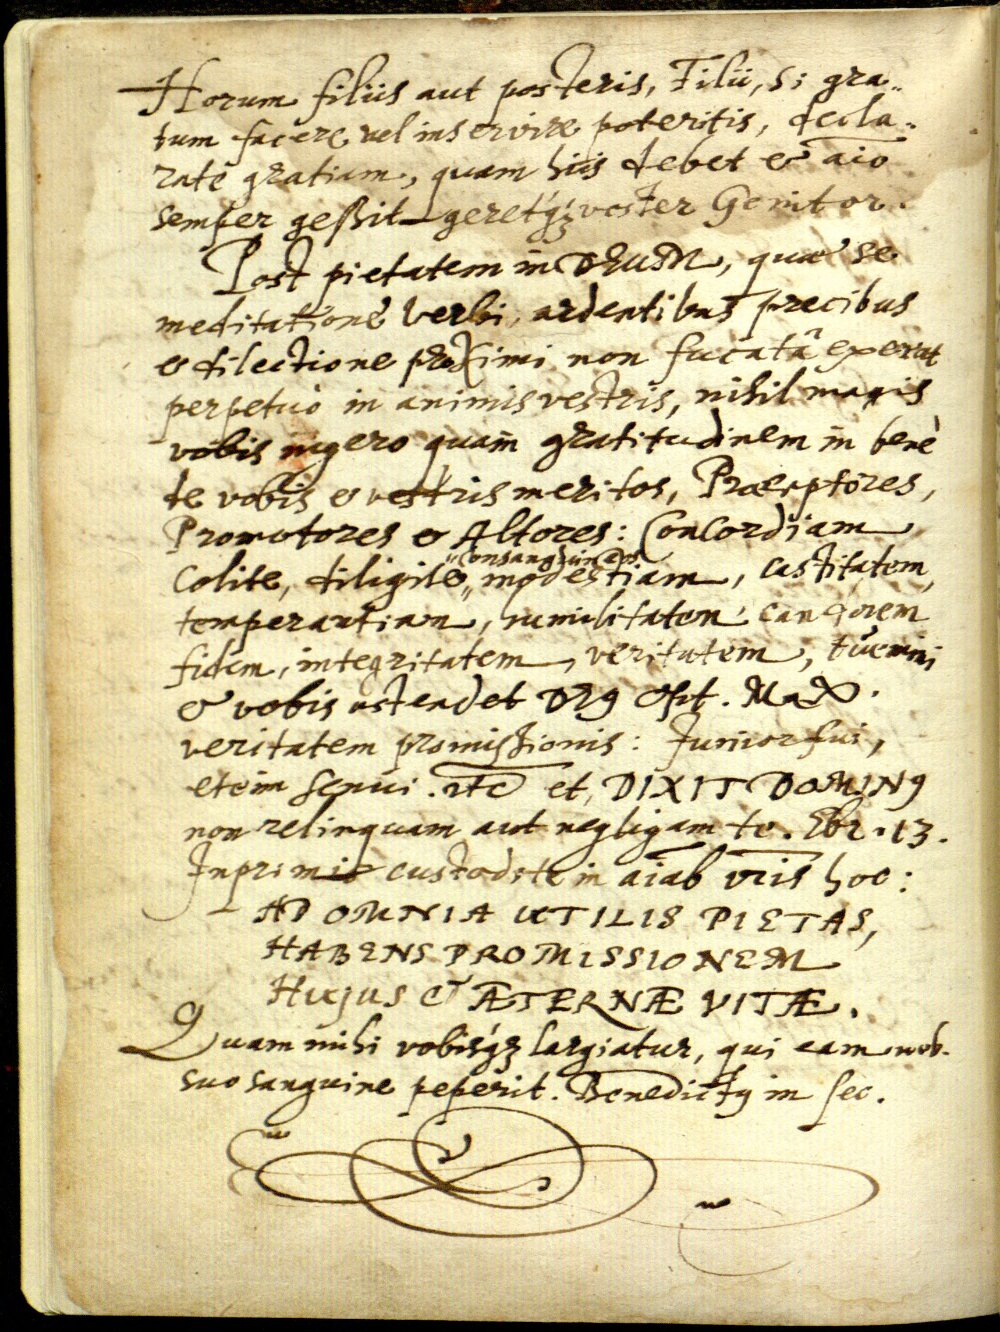 Horum filiis aut posteris, Filii, si gra„
tum facere vel inservire poteritis, decla„
rate gratiam, quam hiis debet & aĩo
semper geßit geretq́ꝫ vester Genitor.
Post pietatem in DEUM, quæ se
meditatione Verbi, ardentibus precibus
& dilectione proximi non fucatâ exerat
perpetuò in animis vestris, nihil magis
vobis quam gratitudinem in benè
de vobis & vestris meritos, Præceptores,
Promotores & Altores: Concordiam
Colite, diligite „Consangvineos„ modestiam, castitatem,
temperantiam, humilitatem candorem
fidem, integritatem, veritatem, tuemini
& vobis ostendet DEꝰ Opt. Max.
veritatem promißionis: Junior fui,
etein senui. etc et, DIXIT DOMINꝰ
non relinquam aut negligam te. Ebr. 13.
Inprimis custodite in aiãb vr̃is hoc:
AD OMNIA UTILIS PIETAS,
HABENS PROMISSIONEM
HUJUS & ÆTERNÆ VITÆ.
Quam mihi vobisq́ꝫ largiatur, qui eam nob.
suo sanguine peperit. Benedictꝰ in sec.